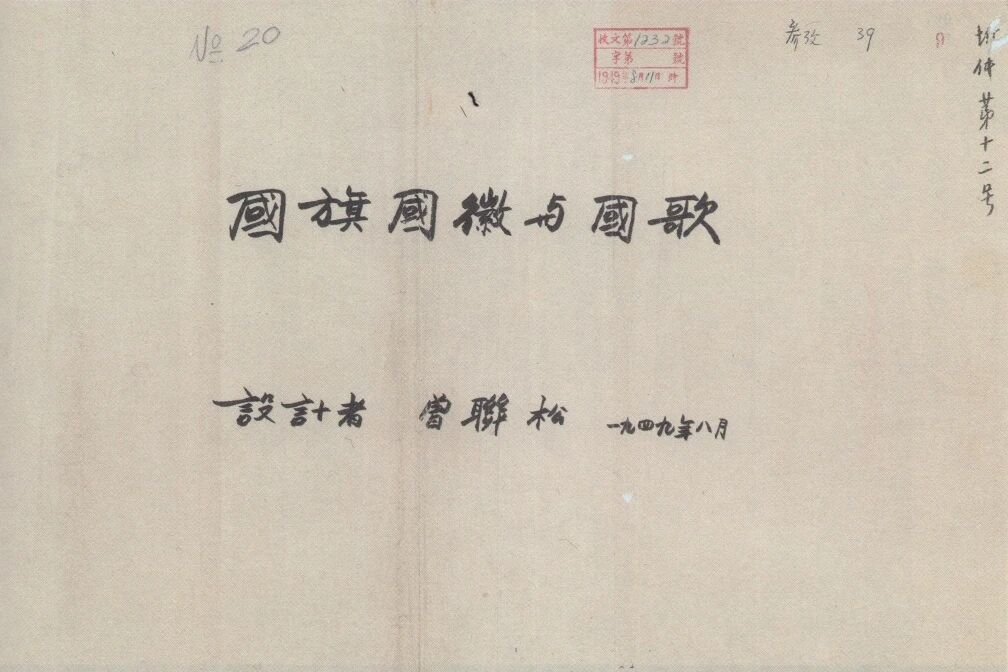 No 20
收文第1232號
字第 號
1949年8月11日 時
參攷 39
第十二号
國旗國徽与國歌
設計者 曾聯松 一九四九年八月